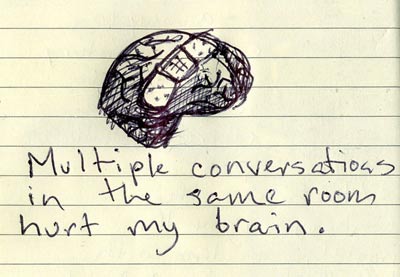 Multiple conversations
in the same room
hurt my brain.